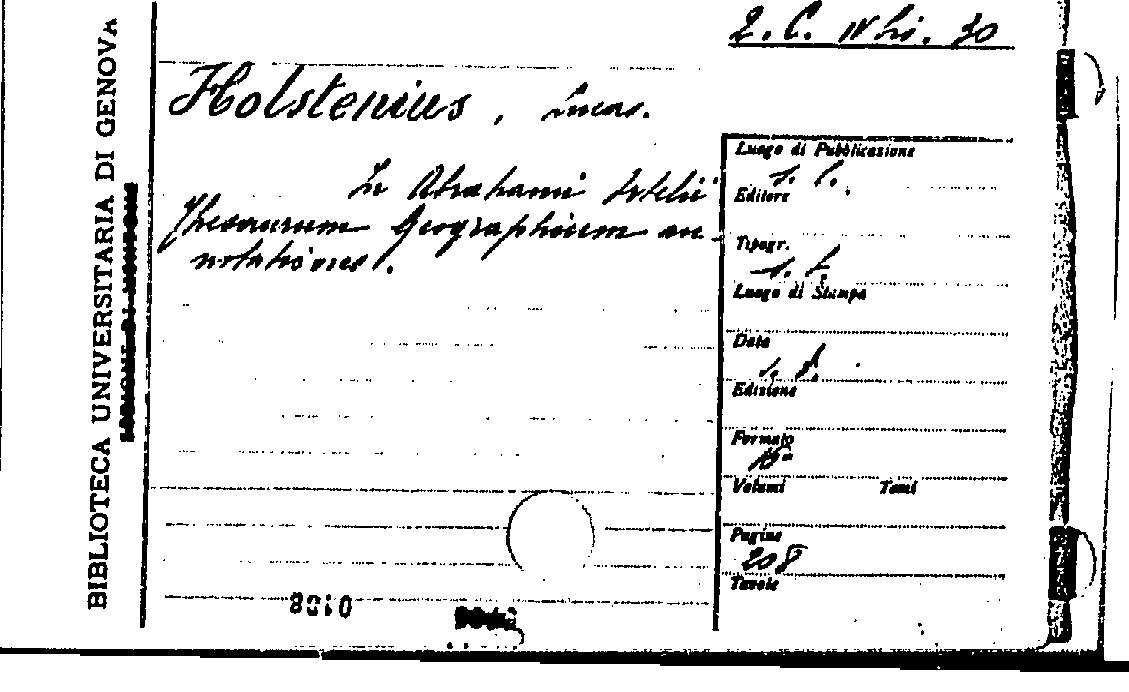 BIBLIOTECA UNIVERSITARIA DI GENOVA
Holstenius, Lucas.
In Abrahami Ortelii
Thesaurum Geographicum an-
notationes.
Luogo di Pubblicazione
s. l.
Editore
Tipogr.
s. t.
Luogo di Stampa
Data
s. d.
Edizione
Formato
Volumi Tomi
Pagine
208
Tavole